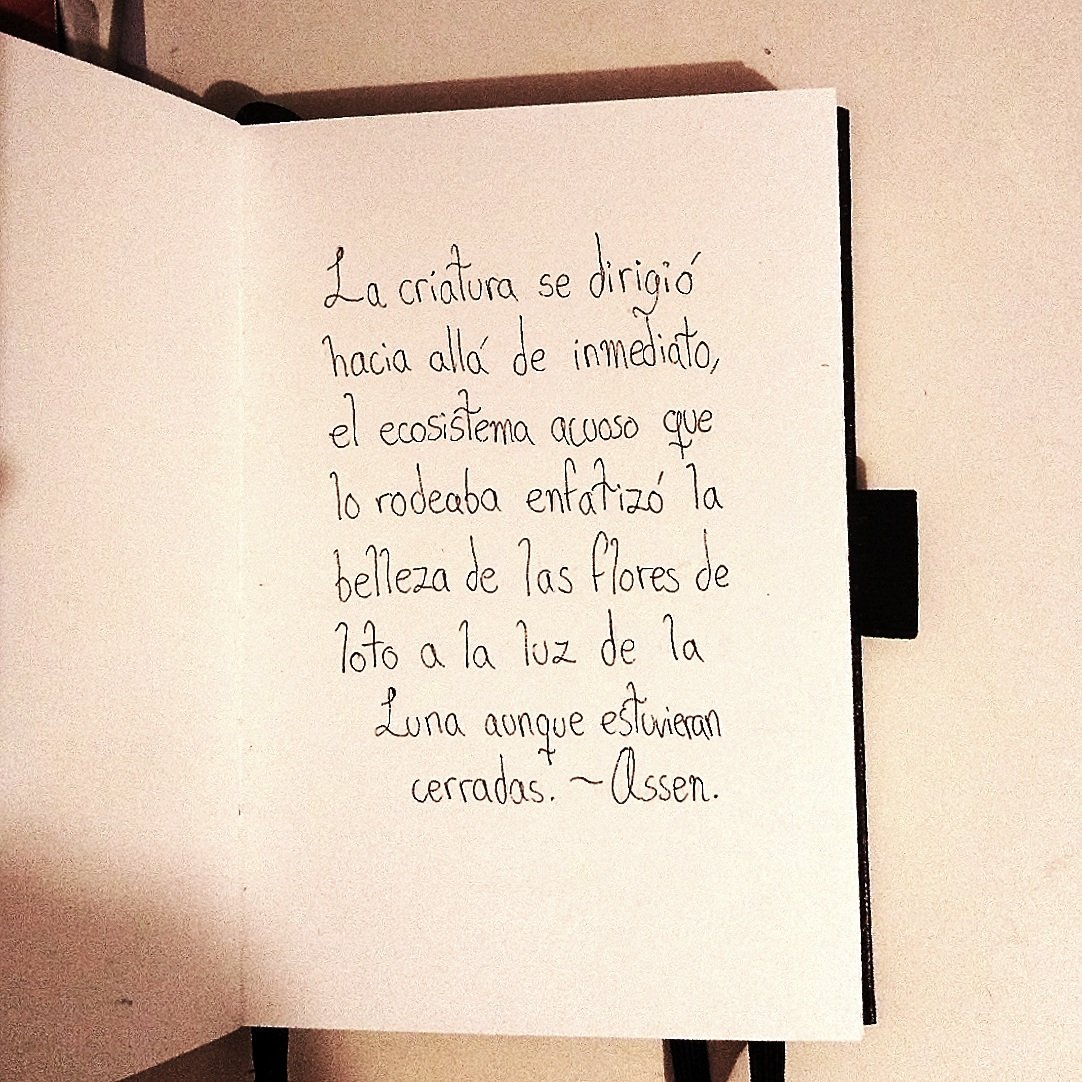 La criatura se dirigió
hacia allá de inmediato,
el ecosistema acuoso que
lo rodeaba enfatizó la
belleza de las flores de
loto a la luz de la
Luna aunque estuvieran
cerradas. ~Assen.